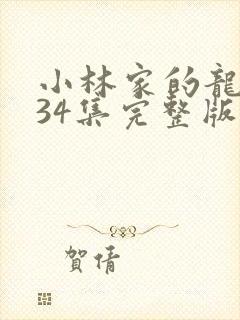 小林家的龍
34集完整版
賀倩